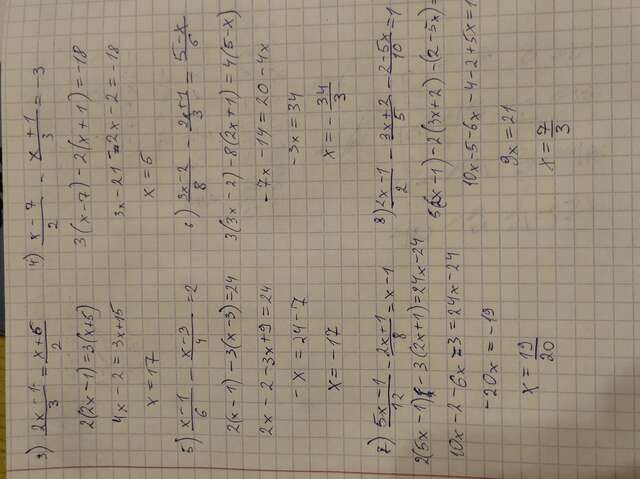 3) (2x-1)/3 = (x+5)/2
2(2x-1)=3(x+5)
4x-2=3x+15
x=17
4) (x-7)/2 - (x+1)/3 = -3
3(x-7)-2(x+1)=-18
3x-21-2x-2=-18
x=5
5) (x-1)/6 - (x-3)/4 = 2
2(x-1)-3(x-3)=24
2x-2-3x+9=24
-x=24-7
x=-17
6) (3x-2)/8 - (2x+1)/3 = (5-x)/6
3(3x-2)-8(2x+1)=4(5-x)
-7x-14=20-4x
-3x=34
x=-34/3
7) (5x-1)/12 - (2x+1)/8 = x-1
2(5x-1)-3(2x+1)=24x-24
10x-2-6x-3=24x-24
-20x=-19
x=19/20
8) (2x-1)/2 - (3x+2)/5 - (2-5x)/10 = 1
5(2x-1)-2(3x+2)-(2-5x)=
10x-5-6x-4-2+5x=1
9x=21
x=7/3